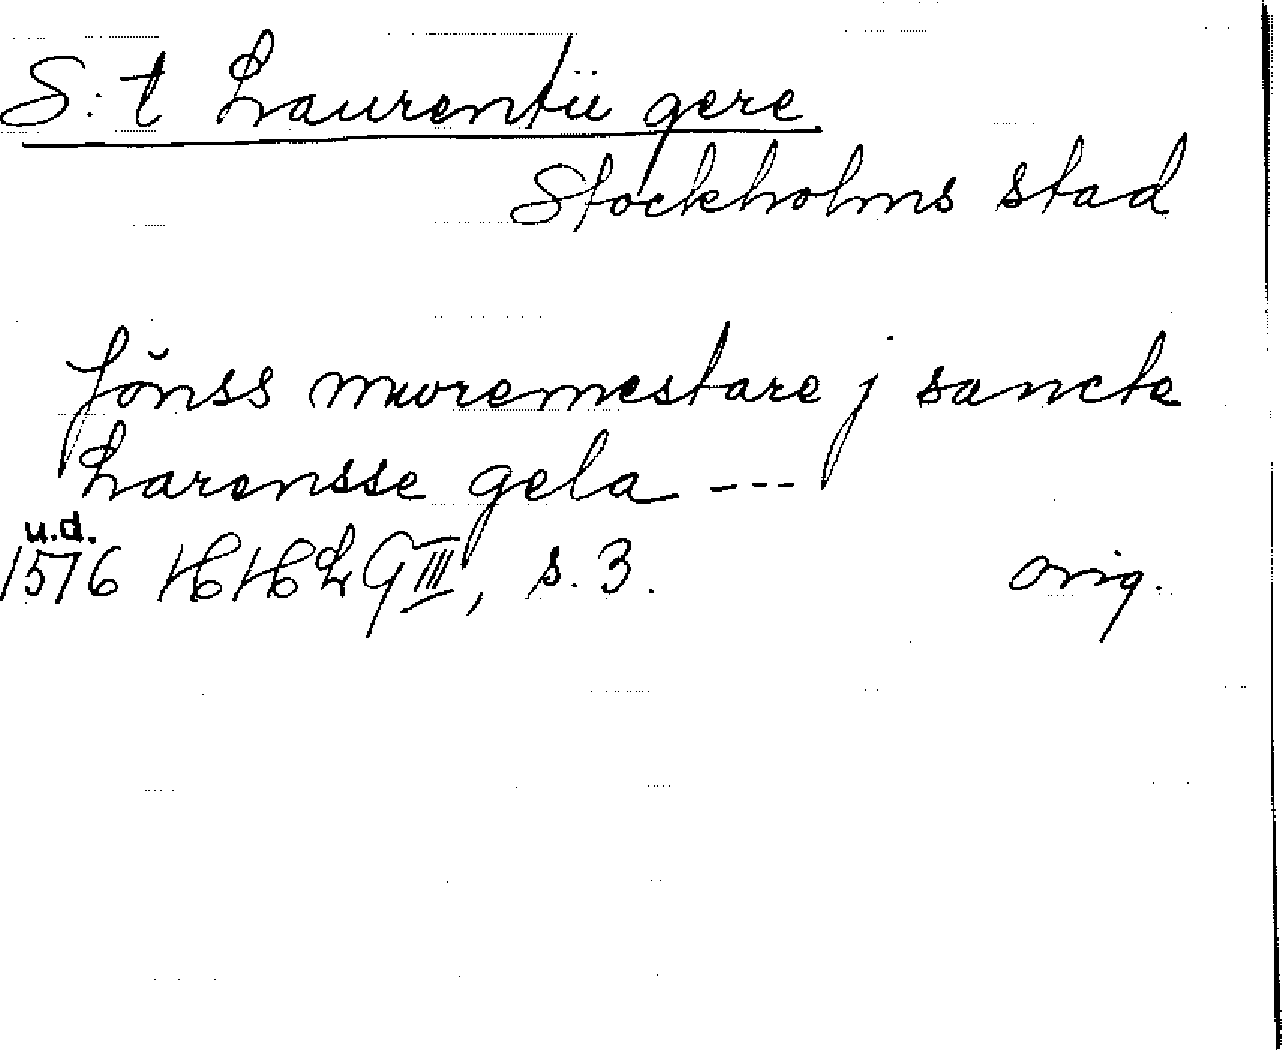 S:t Laurentii gere
Stockholms stad
Jönss mwremestare j sancte
Larensse gela ---
u.d.
1576 HHLG III, s. 3. orig.